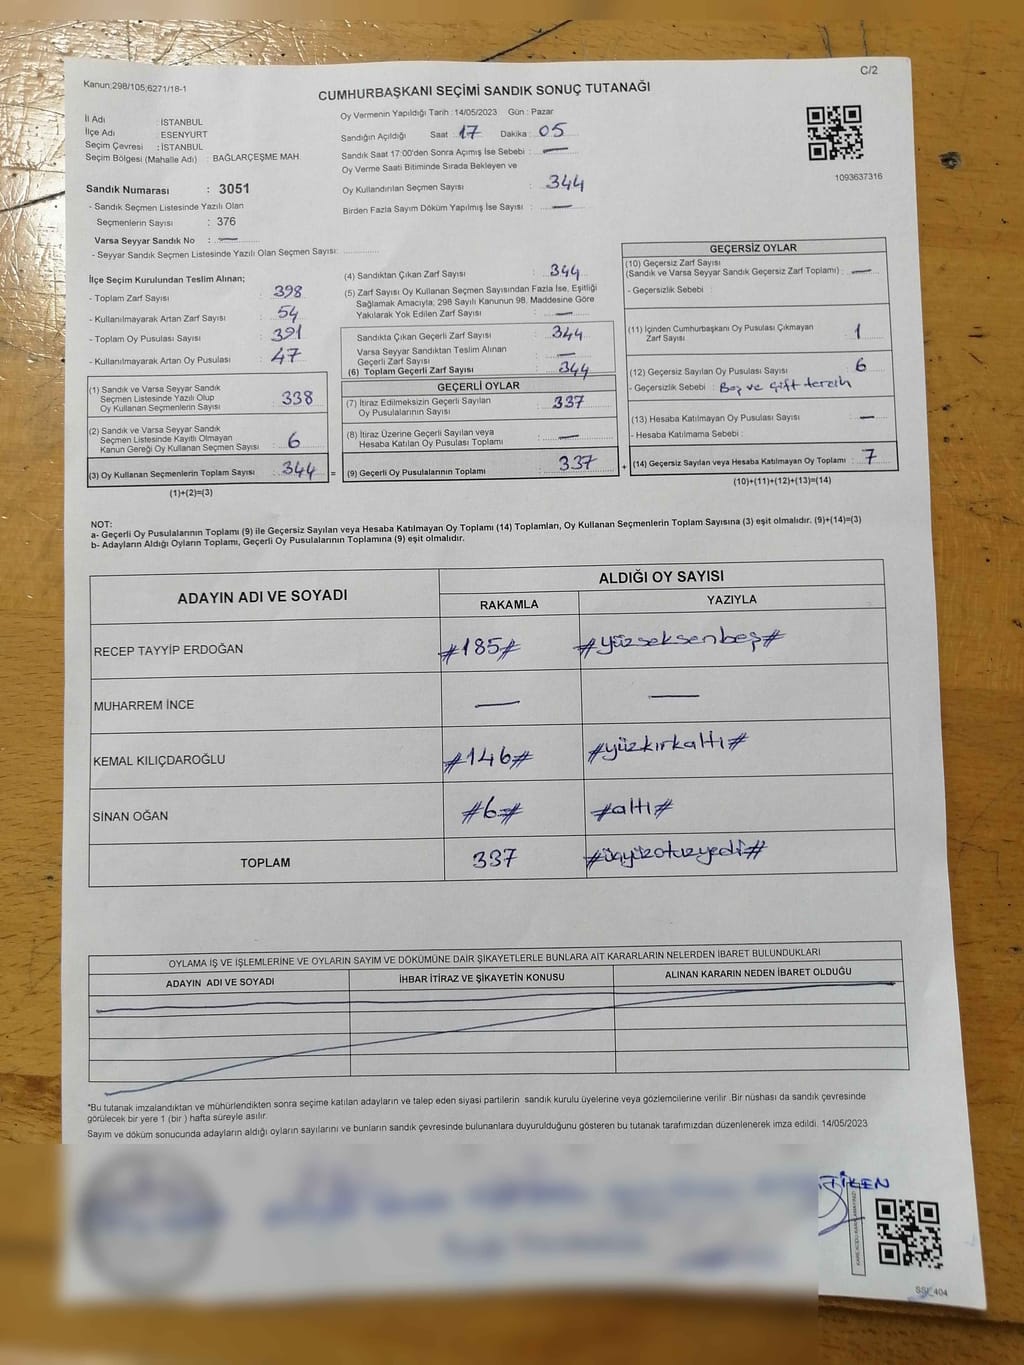 C/2
Kanun;298/105;6271/18-1
CUMHURBAŞKANI SEÇİMİ SANDIK SONUÇ TUTANAĞI
İl Adı : İSTANBUL
İlçe Adı : ESENYURT
Seçim Çevresi : İSTANBUL
Seçim Bölgesi (Mahalle Adı) : BAĞLARÇEŞME MAH.
Sandık Numarası : 3051
- Sandık Seçmen Listesinde Yazılı Olan
Seçmenlerin Sayısı : 376
Varsa Seyyar Sandık No : —
- Seyyar Sandık Seçmen Listesinde Yazılı Olan Seçmen Sayısı:
Oy Vermenin Yapıldığı Tarih : 14/05/2023 Gün : Pazar
Sandığın Açıldığı Saat 17 Dakika : 05
Sandık Saat 17:00'den Sonra Açımış İse Sebebi : —
Oy Verme Saati Bitiminde Sırada Bekleyen ve
Oy Kullandırılan Seçmen Sayısı : 344
Birden Fazla Sayım Döküm Yapılmış İse Sayısı : —
1093637316
İlçe Seçim Kurulundan Teslim Alınan;
- Toplam Zarf Sayısı : 398
- Kullanılmayarak Artan Zarf Sayısı : 54
- Toplam Oy Pusulası Sayısı : 391
- Kullanılmayarak Artan Oy Pusulası : 47
(1) Sandık ve Varsa Seyyar Sandık
Seçmen Listesinde Yazılı Olup
Oy Kullanan Seçmenlerin Sayısı : 338
(2) Sandık ve Varsa Seyyar Sandık
Seçmen Listesinde Kayıtlı Olmayan
Kanun Gereği Oy Kullanan Seçmen Sayısı : 6
(3) Oy Kullanan Seçmenlerin Toplam Sayısı : 344 =
(1)+(2)=(3)
(4) Sandıktan Çıkan Zarf Sayısı : 344
(5) Zarf Sayısı Oy Kullanan Seçmen Sayısından Fazla İse, Eşitliği
Sağlamak Amacıyla; 298 Sayılı Kanunun 98. Maddesine Göre
Yakılarak Yok Edilen Zarf Sayısı : —
Sandıkta Çıkan Geçerli Zarf Sayısı : 344
Varsa Seyyar Sandıktan Teslim Alınan
Geçerli Zarf Sayısı : —
(6) Toplam Geçerli Zarf Sayısı : 344
GEÇERLİ OYLAR
(7) İtiraz Edilmeksizin Geçerli Sayılan
Oy Pusulalarının Sayısı : 337
(8) İtiraz Üzerine Geçerli Sayılan veya
Hesaba Katılan Oy Pusulası Toplamı : —
(9) Geçerli Oy Pusulalarının Toplamı : 337 +
GEÇERSİZ OYLAR
(10) Geçersiz Zarf Sayısı
(Sandık ve Varsa Seyyar Sandık Geçersiz Zarf Toplamı) : —
- Geçersizlik Sebebi :
(11) İçinden Cumhurbaşkanı Oy Pusulası Çıkmayan
Zarf Sayısı : 1
(12) Geçersiz Sayılan Oy Pusulası Sayısı : 6
- Geçersizlik Sebebi : Boş ve çift tercih
(13) Hesaba Katılmayan Oy Pusulası Sayısı : —
- Hesaba Katılmama Sebebi :
(14) Geçersiz Sayılan veya Hesaba Katılmayan Oy Toplamı : 7
(10)+(11)+(12)+(13)=(14)
NOT:
a- Geçerli Oy Pusulalarının Toplamı (9) ile Geçersiz Sayılan veya Hesaba Katılmayan Oy Toplamı (14) Toplamları, Oy Kullanan Seçmenlerin Toplam Sayısına (3) eşit olmalıdır. (9)+(14)=(3)
b- Adayların Aldığı Oyların Toplamı, Geçerli Oy Pusulalarının Toplamına (9) eşit olmalıdır.
ADAYIN ADI VE SOYADI
ALDIĞI OY SAYISI
RAKAMLA YAZIYLA
RECEP TAYYİP ERDOĞAN #185# #yüzseksenbeş#
MUHARREM İNCE — —
KEMAL KILIÇDAROĞLU #146# #yüzkırkaltı#
SİNAN OĞAN #6# #altı#
TOPLAM 337 #üçyüzotuzyedi#
OYLAMA İŞ VE İŞLEMLERİNE VE OYLARIN SAYIM VE DÖKÜMÜNE DAİR ŞİKAYETLERLE BUNLARA AİT KARARLARIN NELERDEN İBARET BULUNDUKLARI
ADAYIN ADI VE SOYADI İHBAR İTİRAZ VE ŞİKAYETİN KONUSU ALINAN KARARIN NEDEN İBARET OLDUĞU
*Bu tutanak imzalandıktan ve mühürlendikten sonra seçime katılan adayların ve talep eden siyasi partilerin sandık kurulu üyelerine veya gözlemcilerine verilir .Bir nüshası da sandık çevresinde
görülecek bir yere 1 (bir ) hafta süreyle asılır.
Sayım ve döküm sonucunda adayların aldığı oyların sayılarını ve bunların sandık çevresinde bulunanlara duyurulduğunu gösteren bu tutanak tarafımızdan düzenlenerek imza edildi. 14/05/2023